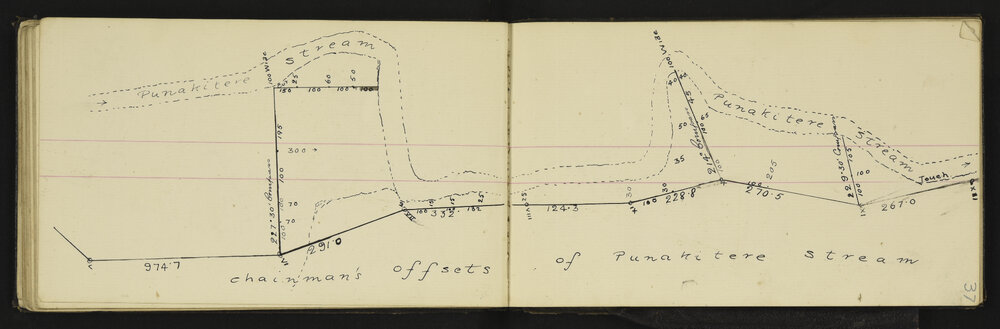 Punakitere Stream
227°30' Compass
195
100
100
100
300 →
70
70
150 100 100 100
25 60 50
V
974.7
VI
291.0
332
100 132
15 15 25
VIII
25
124.3
IX
30
100
30
228.8
35
50
214° Compass
100
65
45
100
270.5
205
Punakitere Stream
229°30' Compass
105
100
XI
267.0
Touch
XII
chainman's offsets of Punakitere Stream
37